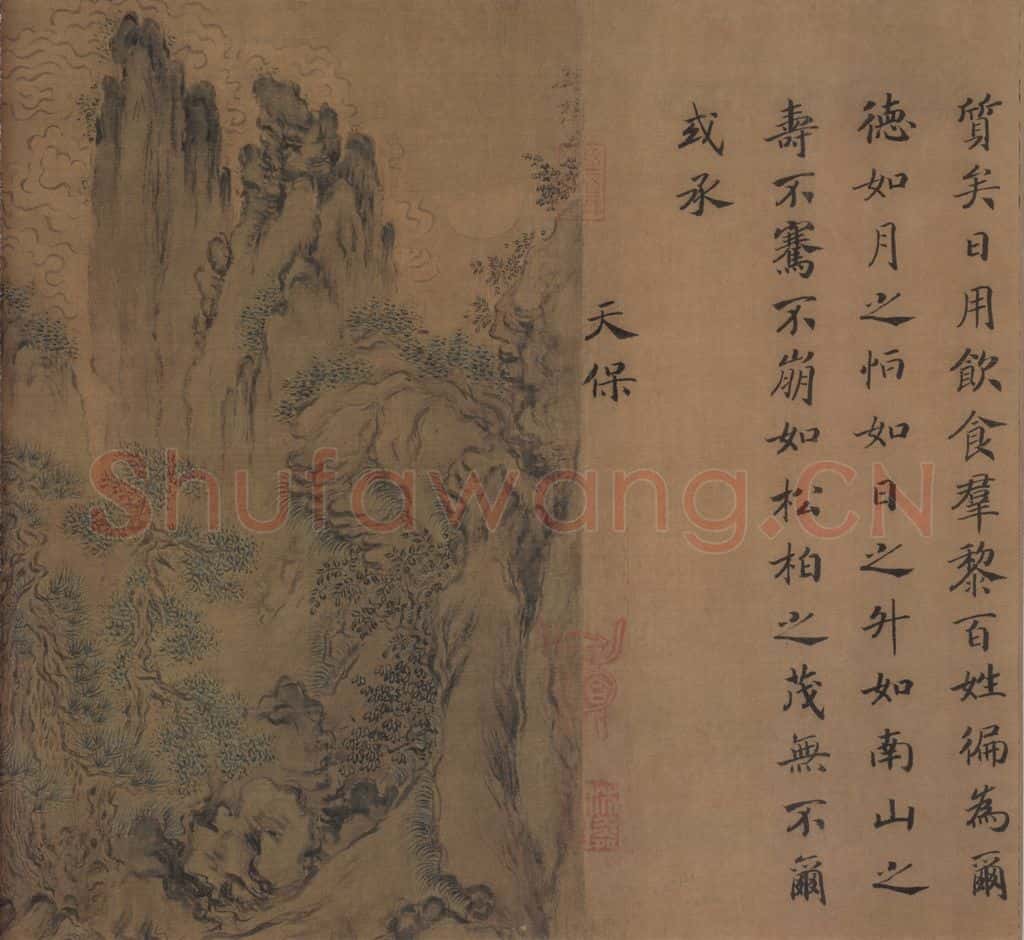 質矣日用飲食羣黎百姓徧為爾
徳如月之恒如日之升如南山之
壽不騫不崩如松柏之茂無不爾
或承
天保
Shufawang.CN